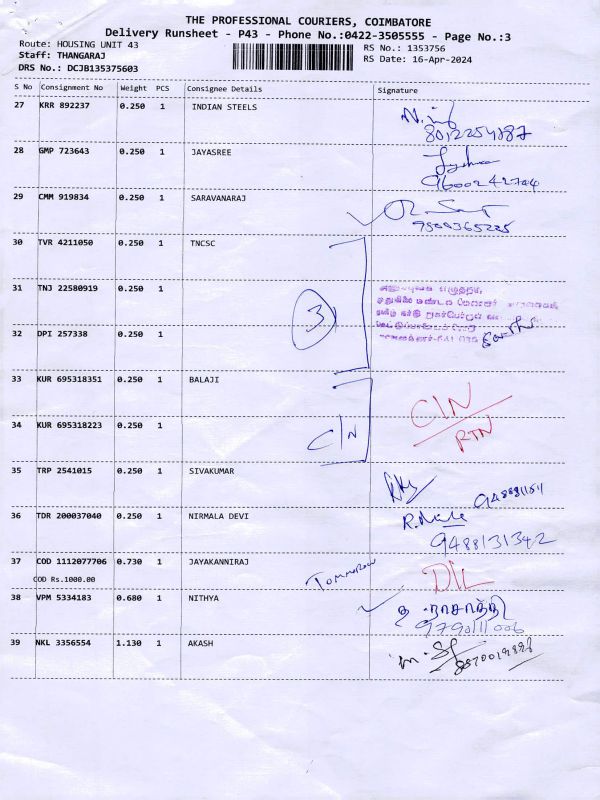 THE PROFESSIONAL COURIERS, COIMBATORE
Delivery Runsheet - P43 - Phone No.:0422-3505555 - Page No.:3
Route: HOUSING UNIT 43
RS No.: 1353756
Staff: THANGARAJ
RS Date: 16-Apr-2024
DRS No.: DCJB135375603
S No Consignment No Weight PCS Consignee Details Signature
27 KRR 892237 0.250 1 INDIAN STEELS
28 GMP 723643 0.250 1 JAYASREE
9600242704
29 CMM 919834 0.250 1 SARAVANARAJ
30 TVR 4211050 0.250 1 TNCSC
31 TNJ 22580919 0.250 1
3
32 DPI 257338 0.250 1
33 KUR 695318351 0.250 1 BALAJI
C/N
34 KUR 695318223 0.250 1
C/N
RTN
35 TRP 2541015 0.250 1 SIVAKUMAR
36 TDR 200037040 0.250 1 NIRMALA DEVI
9488131342
37 COD 1112077706 0.730 1 JAYAKANNIRAJ
COD Rs.1000.00
Tommorow
D/L
38 VPM 5334183 0.680 1 NITHYA
39 NKL 3356554 1.130 1 AKASH